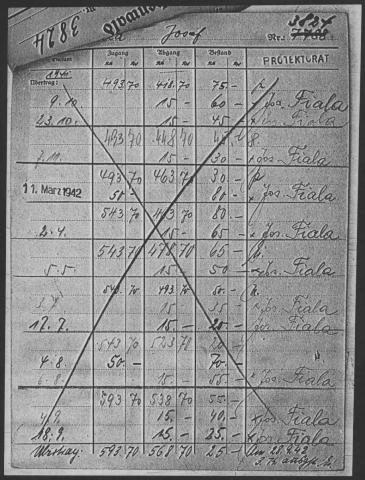 3824
Josef
3824
Nr.: 7788
Zugang Abgang Bestand PROTEKTURAT
1940
Übertrag: 493.70 418.70 75.-
9.10. 15.- 60.- x Jos. Fiala
23.10. 15.- 45.- Fiala
493 70 448 70 45.-
7.11. 15.- 30.- x Jos. Fiala
493 70 463 70 30.-
11. März 1942 50.- 80.- x Jos. Fiala
543 70 463 70 80.-
2.4. 15.- 65.- x Jos. Fiala
543 70 478 70 65.-
5.5. 15.- 50.- x Jos. Fiala
543. 70 493. 70 50.-
15.- 35.- x Jos. Fiala
17.7. 15.- 20.- x Jos. Fiala
543 70 523 70 20.-
4.8. 50.- 70.- "
6.8. 15.- 55.- x Jos. Fiala
593 70 538 70 55.-
4.9. 15.- 40.- x Jos. Fiala
18.9. 15.- 25.- x Jos. Fiala
593 70 568 70 25.- Am 28.9.42